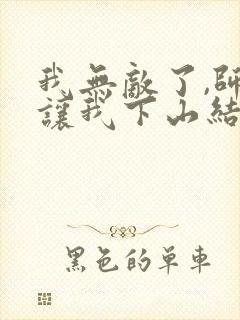 我無敵了,師
讓我下山結
黑色的單車